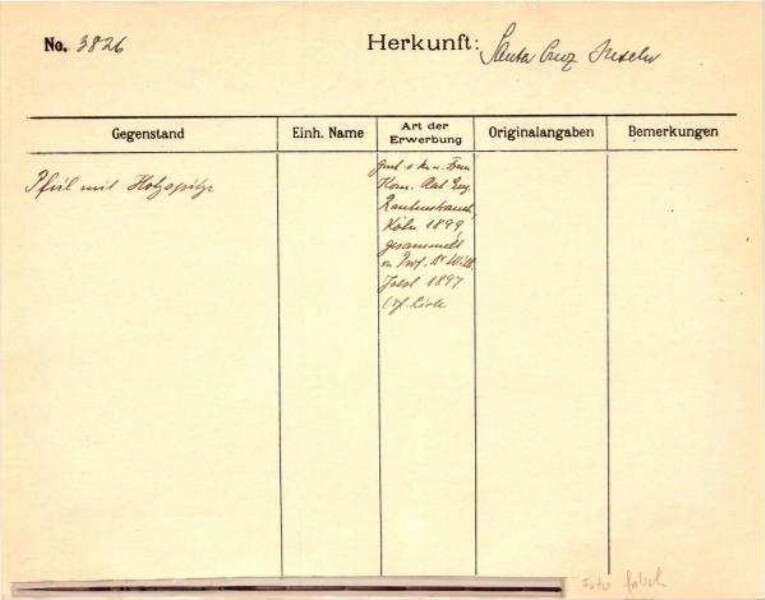 No. 3826
Herkunft: Santa Cruz Inseln
Gegenstand
Einh. Name
Art der
Erwerbung
Originalangaben
Bemerkungen
Pfeil mit Holzspitze
Frau
Kom. Rat Eug.
Rautenstrauch,
Köln 1899,
gesammelt
v. Prof. Dr Wilh.
Joest 1897
Foto falsch